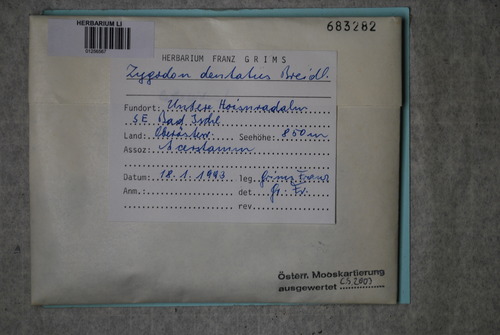 HERBARIUM LI
683282
HERBARIUM FRANZ GRIMS
Zygodon dentatus Breidl.
Fundort: Untere
SE Bad Ischl
Land: Oberösterr. Seehöhe: 850 m
Assoz:
Datum: 18.1.1993 leg. Grims Franz
Anm.: det Gr. Fr.
rev.
Österr. Mooskartierung
ausgewertet CS 2003